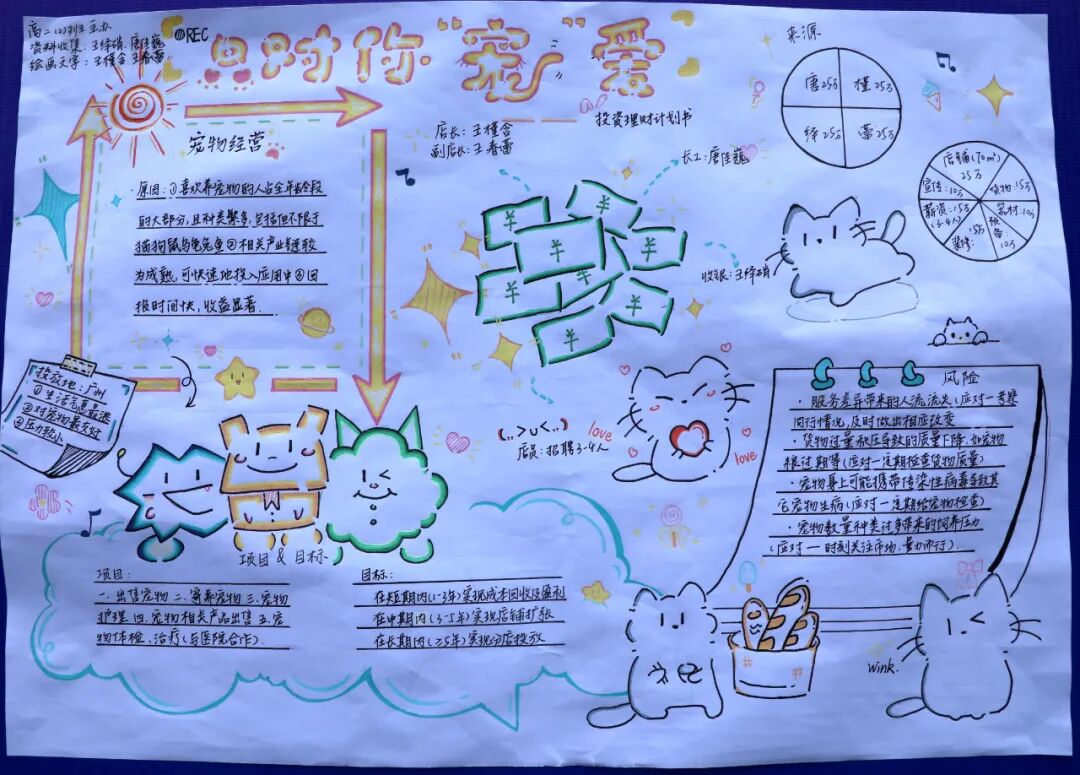 高二(2)班主办
资料收集：王绎硝、唐佳巍
绘画文字：王槿含 王春蕾
REC
只对你“宠”爱
投资理财计划书
店长：王槿含
副店长：王春蕾
长工：唐佳巍
收银：王绎硝
店员：招聘3-4人
来源
唐25万
槿25万
绎25万
蕾25万
店铺(70㎡)
25万
宣传：10万
货物：15万
薪资：15万
(3-4人)
器材：10万
装修：
15万
预备
10万
宠物经营
·原因：①喜欢养宠物的人占全年龄段
的大部分，且种类繁多，包括但不限于
猫狗鼠鸟龟兔鱼②相关产业链较
为成熟，可快速地投入应用中③回
报时间快，收益显著.
投放地：广州
①生活气息最浓
②对宠物最友好
③压力较小
¥
¥
¥
¥
¥
¥
¥
(..>u<..)
love
love
风险
·服务差异带来的人流流失(应对一考察
同行情况，及时做出相应改变
·货物过量积压导致的质量下降，如宠物
粮过期等(应对一定期检查货物质量)
·宠物身上可能携带传染性病毒导致其
它宠物生病(应对一定期给宠物检查)
·宠物数量种类过多带来的饲养压力
(应对一时刻关注市场，量力而行).
项目 & 目标
项目：
一.出售宠物 二.寄养宠物 三.宠物
护理 四.宠物相关产品出售 五.宠
物体检、治疗(与医院合作).
目标：
在短期内(1-3年)实现成本回收及盈利
在中期内(3-5年)实现店铺扩张
在长期内(≥5年)实现分店投放
wink.